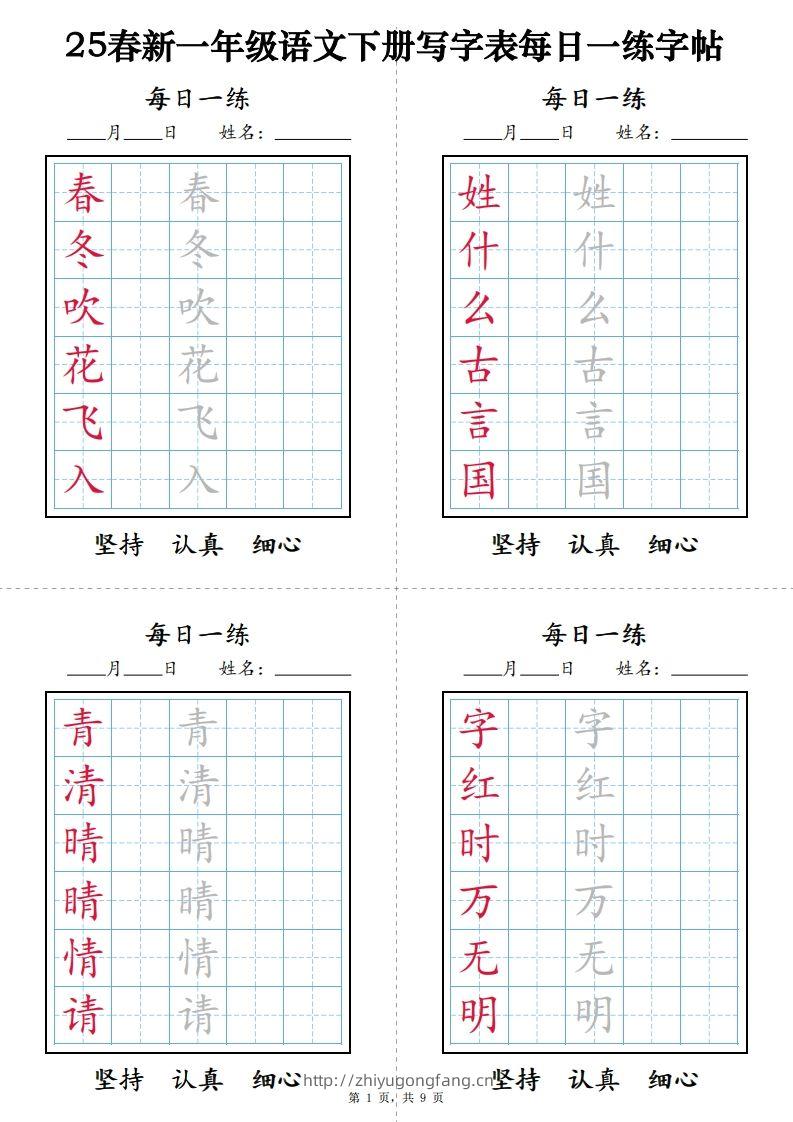 25春新一年级语文下册写字表每日一练字帖
每日一练
____月____日 姓名：________
春 春
冬 冬
吹 吹
花 花
飞 飞
入 入
坚持 认真 细心
每日一练
____月____日 姓名：________
姓 姓
什 什
么 么
古 古
言 言
国 国
坚持 认真 细心
每日一练
____月____日 姓名：________
青 青
清 清
晴 晴
睛 睛
情 情
请 请
坚持 认真 细心
每日一练
____月____日 姓名：________
字 字
红 红
时 时
万 万
无 无
明 明
坚持 认真 细心
http://zhiyugongfang.cn
第 1 页，共 9 页